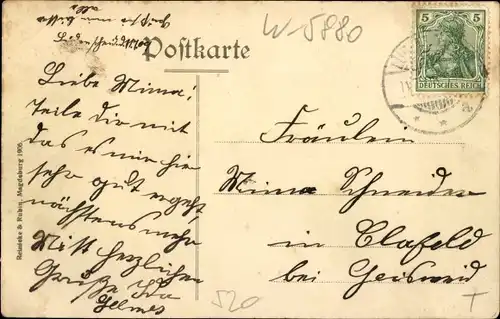 W-5880
Postkarte
5 5
DEUTSCHES REICH
Liebe Mima!
Teile dir mit
das es mir hier
sehr gut ergeht
nächstens mehr
Mit herzlichen
Grüße Ida
Fräulein
Mima Schneider
in Clafeld
bei Geisweid
Reinicke & Rubin, Magdeburg 1906.
520